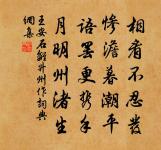 相看不忍發
慘澹暮潮平
語罷更攜手
月明洲渚生
王安石離昇州作詞典
網集